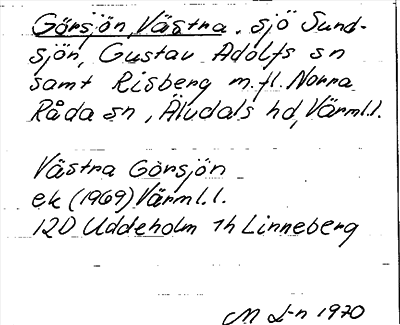 Görsjön, Västra, sjö Sund-
sjön, Gustav Adolfs sn
samt Risberg m.fl. Norra
Råda sn, Älvdals hd, Värml.l.
Västra Görsjön
ek (1969) Värml.l.
12D Uddeholm 1h Linneberg
M L-n 1970